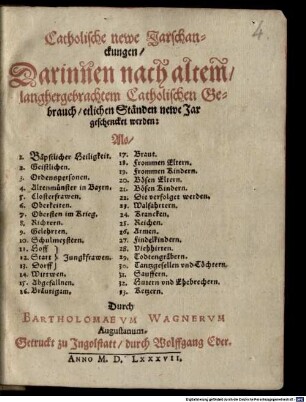 4.
Catholische newe Jarschan-
ckungen/
Darinnen nach altem/
langhergebrachtem Catholischen Ge-
brauch/ etlichen Ständen newe Jar
geschenckt werden:
Als/
1. Bäpstlicher Heiligkeit.
2. Geistlichen.
3. Ordenspersonen.
4. Altenmünster in Bayrn.
5. Closterfrawen.
6. Oberkeiten.
7. Obersten im Krieg.
8. Richtern.
9. Gelehrten.
10. Schulmeystern.
11. Hoff
12. Statt Jungkfrawen.
13. Dorff
14. Witwen.
15. Abgefallnen.
16. Bräutigam.
17. Braut.
18. Frommen Eltern.
19. Frommen Kindern.
20. Bösen Eltern.
21. Bösen Kindern.
22. Die verfolget werden.
23. Walfahrtern.
24. Krancken.
25. Reichen.
26. Armen.
27. Findelkindern.
28. Viehhirten.
29. Todtengräbern.
30. Tantzgesellen vnd Töchtern.
31. Sauffern.
32. Hurern vnd Ehebrechern.
33. Ketzern.
Durch
BARTHOLOMAEVM WAGNERVM
Augustanum.
Getruckt zu Ingolstatt/ durch Wolffgang Eder.
ANNO M. D. LXXXVII.